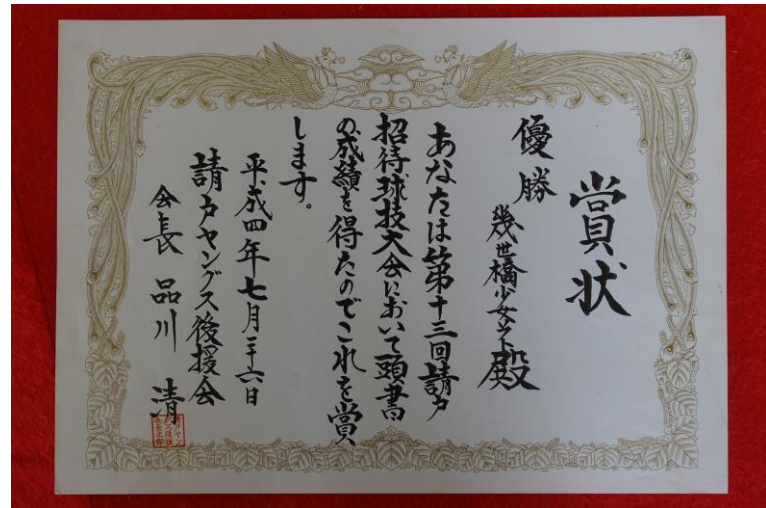 賞状
優勝
幾世橋少女ソフト殿
あなたは第十三回請戸
招待球技大会において頭書
の成績を得たのでこれを賞
します。
平成四年七月二十六日
請戸ヤングス後援会
会長 品川 清